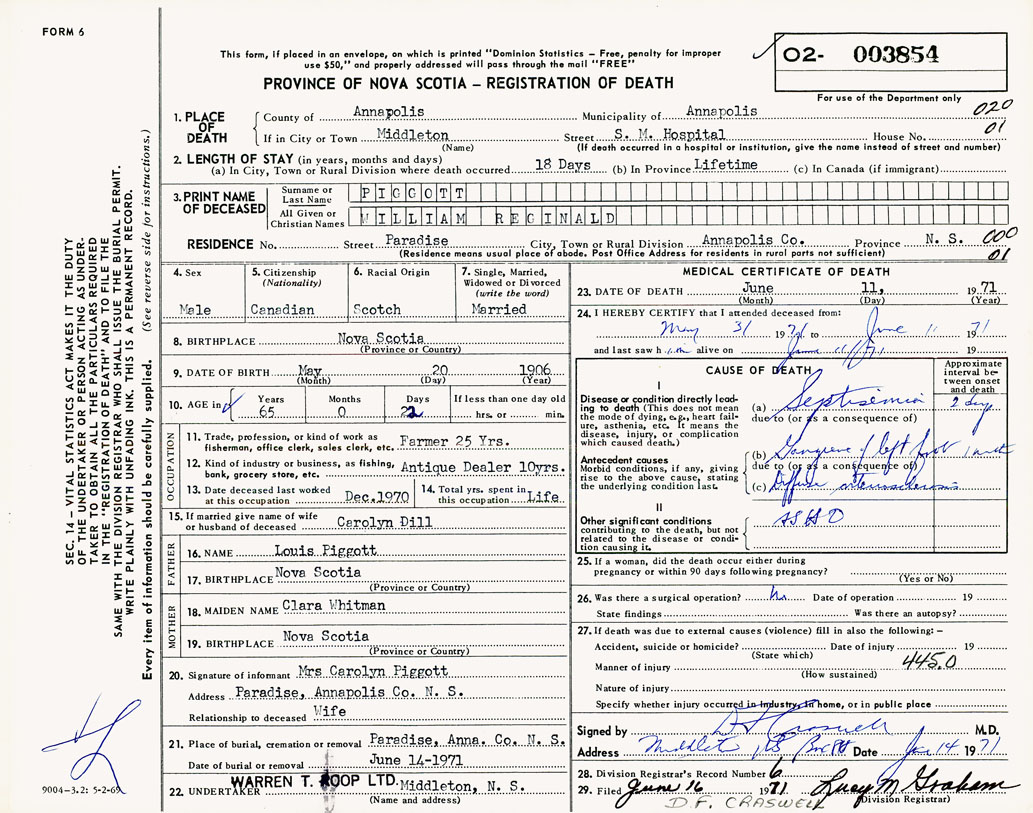 FORM 6
This form, if placed in an envelope, on which is printed "Dominion Statistics – Free, penalty for improper
use $50," and properly addressed will pass through the mail "FREE"
O2- 003854
PROVINCE OF NOVA SCOTIA – REGISTRATION OF DEATH
For use of the Department only
SEC. 14 – VITAL STATISTICS ACT MAKES IT THE DUTY
OF THE UNDERTAKER OR PERSON ACTING AS UNDER-
TAKER TO OBTAIN ALL THE PARTICULARS REQUIRED
IN THE "REGISTRATION OF DEATH" AND TO FILE THE
SAME WITH THE DIVISION REGISTRAR WHO SHALL ISSUE THE BURIAL PERMIT.
WRITE PLAINLY WITH UNFADING INK. THIS IS A PERMANENT RECORD.
Every item of information should be carefully supplied. (See reverse side for instructions.)
1. PLACE OF DEATH County of Annapolis Municipality of Annapolis 020
If in City or Town Middleton Street S. M. Hospital House No. 01
(Name) (If death occurred in a hospital or institution, give the name instead of street and number)
2. LENGTH OF STAY (in years, months and days)
(a) In City, Town or Rural Division where death occurred 18 Days (b) In Province Lifetime (c) In Canada (if immigrant)
3. PRINT NAME OF DECEASED Surname or Last Name PIGGOTT
All Given or Christian Names WILLIAM REGINALD
RESIDENCE No. Street Paradise City, Town or Rural Division Annapolis Co. Province N. S. 000
(Residence means usual place of abode. Post Office Address for residents in rural parts not sufficient) 01
4. Sex Male
5. Citizenship (Nationality) Canadian
6. Racial Origin Scotch
7. Single, Married, Widowed or Divorced (write the word) Married
8. BIRTHPLACE Nova Scotia
(Province or Country)
9. DATE OF BIRTH May 20 1906
(Month) (Day) (Year)
10. AGE in Years 65 Months 0 Days 22 If less than one day old hrs. or min.
OCCUPATION
11. Trade, profession, or kind of work as fisherman, office clerk, sales clerk, etc. Farmer 25 Yrs.
12. Kind of industry or business, as fishing, bank, grocery store, etc. Antique Dealer 10yrs.
13. Date deceased last worked at this occupation Dec.1970 14. Total yrs. spent in this occupation Life
15. If married give name of wife or husband of deceased Carolyn Dill
FATHER
16. NAME Louis Piggott
17. BIRTHPLACE Nova Scotia
(Province or Country)
MOTHER
18. MAIDEN NAME Clara Whitman
19. BIRTHPLACE Nova Scotia
(Province or Country)
20. Signature of informant Mrs Carolyn Piggott
Address Paradise, Annapolis Co. N. S.
Relationship to deceased Wife
21. Place of burial, cremation or removal Paradise, Anna. Co. N. S.
Date of burial or removal June 14-1971
22. UNDERTAKER WARREN T. ROOP LTD. Middleton, N. S.
(Name and address)
9004-3.2: 5-2-69
MEDICAL CERTIFICATE OF DEATH
23. DATE OF DEATH June 11, 1971
(Month) (Day) (Year)
24. I HEREBY CERTIFY that I attended deceased from:
May 31 1971 to June 11 1971
and last saw him alive on June 11/71 19
CAUSE OF DEATH
Approximate interval between onset and death
I
Disease or condition directly leading to death (This does not mean the mode of dying, e.g., heart failure, asthenia, etc. It means the disease, injury, or complication which caused death.)
(a) Septisemia 2 day
due to (or as a consequence of)
Antecedent causes
Morbid conditions, if any, giving rise to the above cause, stating the underlying condition last.
(b) Gangrene of left foot 1 mth
due to (or as a consequence of)
(c) Diffuse
II
Other significant conditions contributing to the death, but not related to the disease or condition causing it.
ASHD
25. If a woman, did the death occur either during pregnancy or within 90 days following pregnancy?
(Yes or No)
26. Was there a surgical operation? No Date of operation 19
State findings Was there an autopsy?
27. If death was due to external causes (violence) fill in also the following: –
Accident, suicide or homicide? Date of injury 19
(State which)
Manner of injury 445.0
(How sustained)
Nature of injury
Specify whether injury occurred in Industry, in home, or in public place
Signed by D F Craswell M.D.
Address Date June 14 1971
28. Division Registrar's Record Number 6
29. Filed June 16 1971 Lucy M Graham
D.F. CRASWELL (Division Registrar)